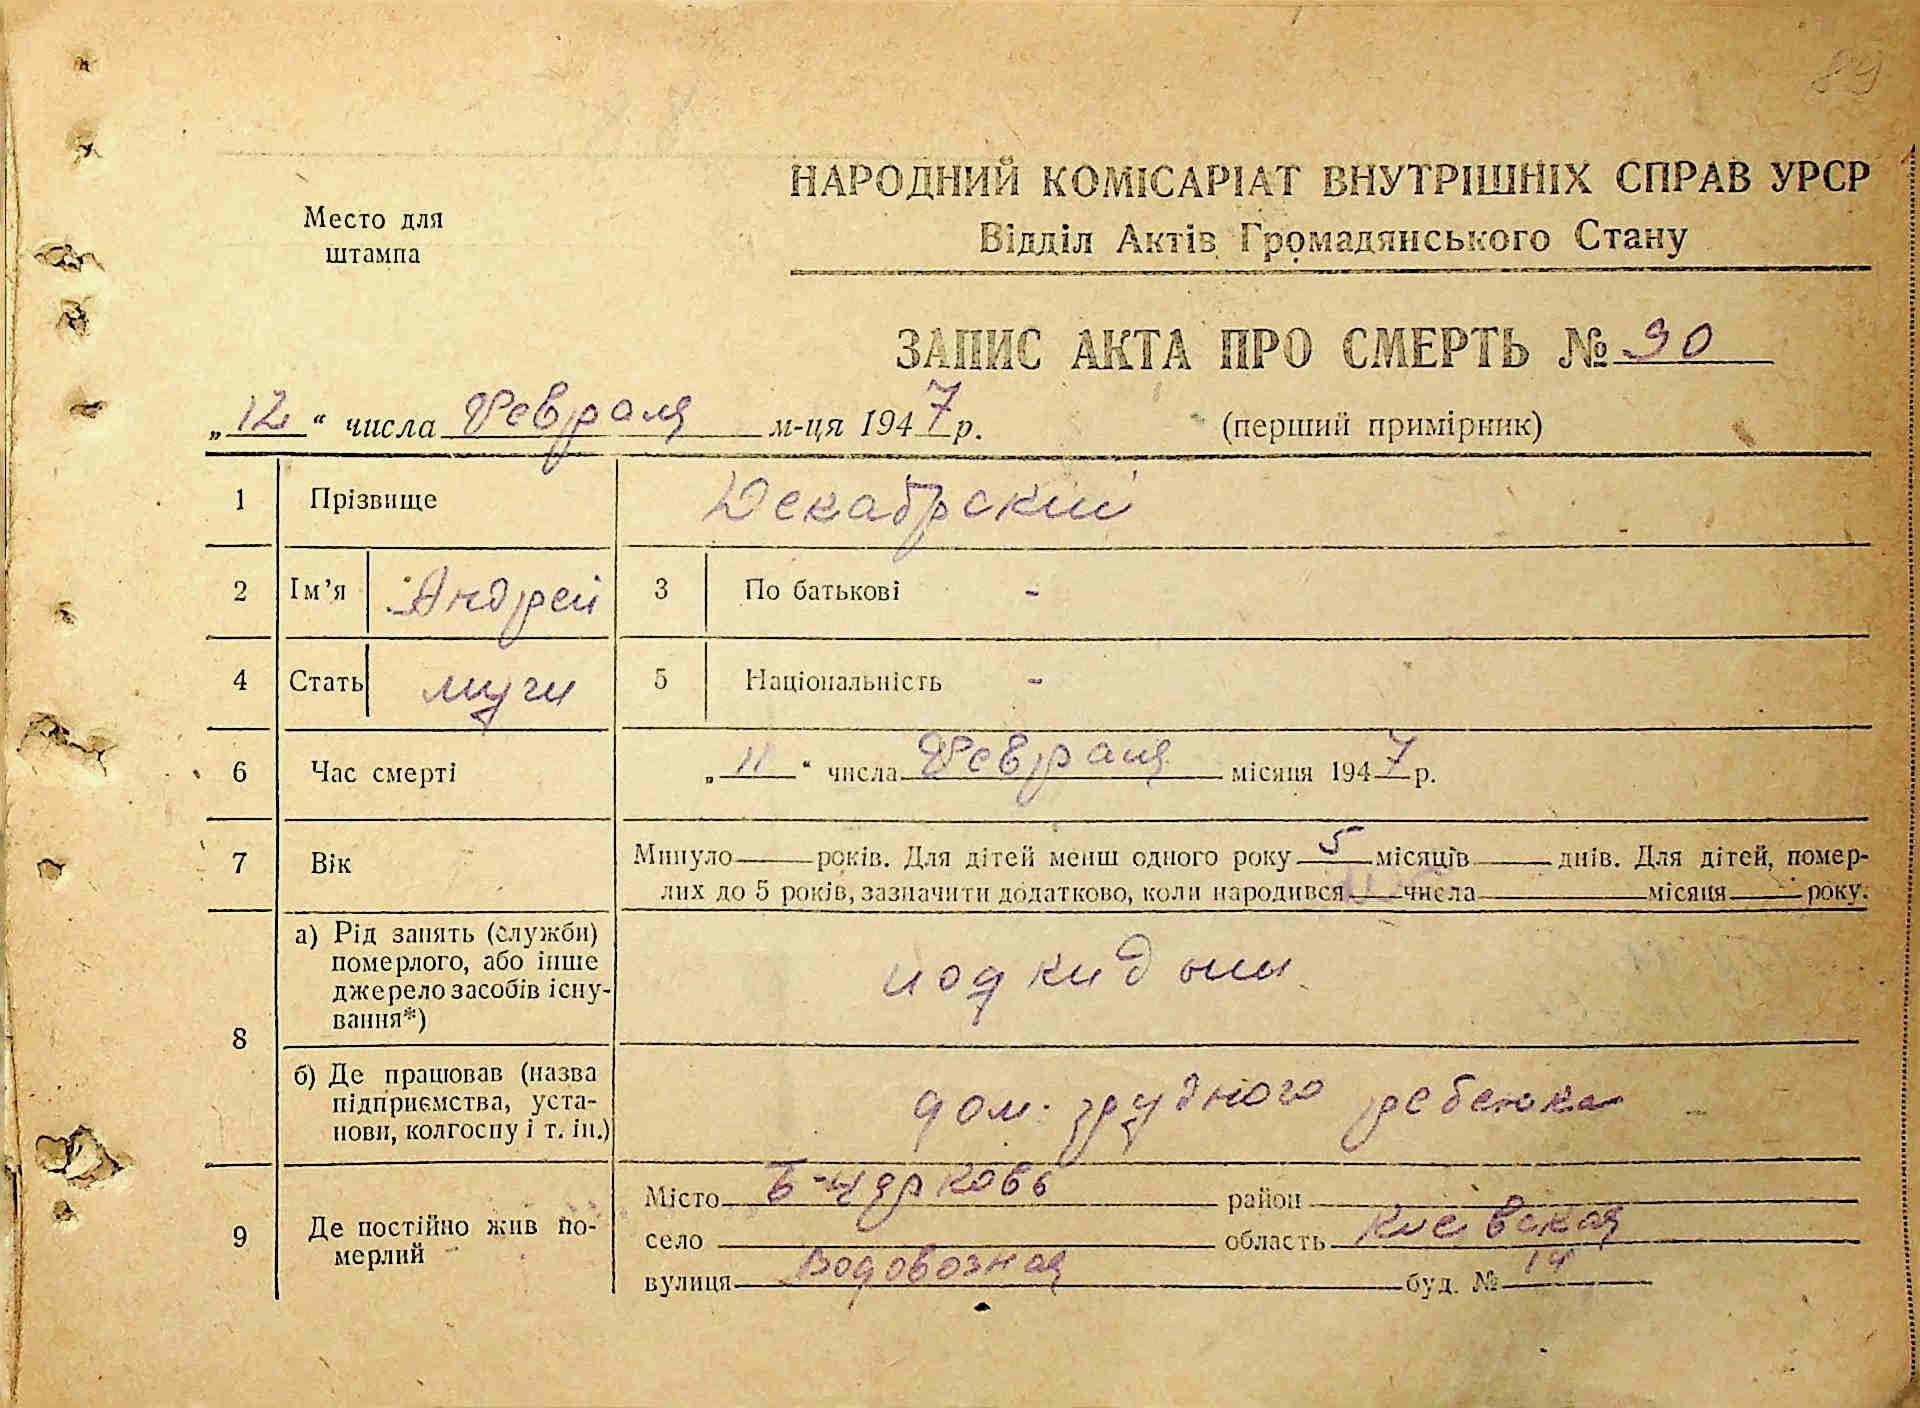 89
НАРОДНИЙ КОМІСАРІАТ ВНУТРІШНІХ СПРАВ УРСР
Место для
штампа
Відділ Актів Громадянського Стану
ЗАПИС АКТА ПРО СМЕРТЬ № 90
„12“ числа Февраля м-ця 1947 р.
(перший примірник)
1 Прізвище Декабрский
2 Ім’я Андрей 3 По батькові -
4 Стать муж 5 Національність -
6 Час смерті „11“ числа Февраля місяця 1947 р.
7 Вік Минуло ___ років. Для дітей менш одного року 5 місяців ___ днів. Для дітей, помер-
лих до 5 років, зазначити додатково, коли народився ___ числа ___ місяця ___ року.
8 а) Рід занять (служби)
померлого, або інше
джерело засобів існу-
вання*)
подкидыш
б) Де працював (назва
підприємства, уста-
нови, колгоспу і т. ін.)
дом. грудного ребенка
9 Де постійно жив по-
мерлий
Місто Б-Церковь район
село область Киевская
вулиця Водовозная буд. № 14